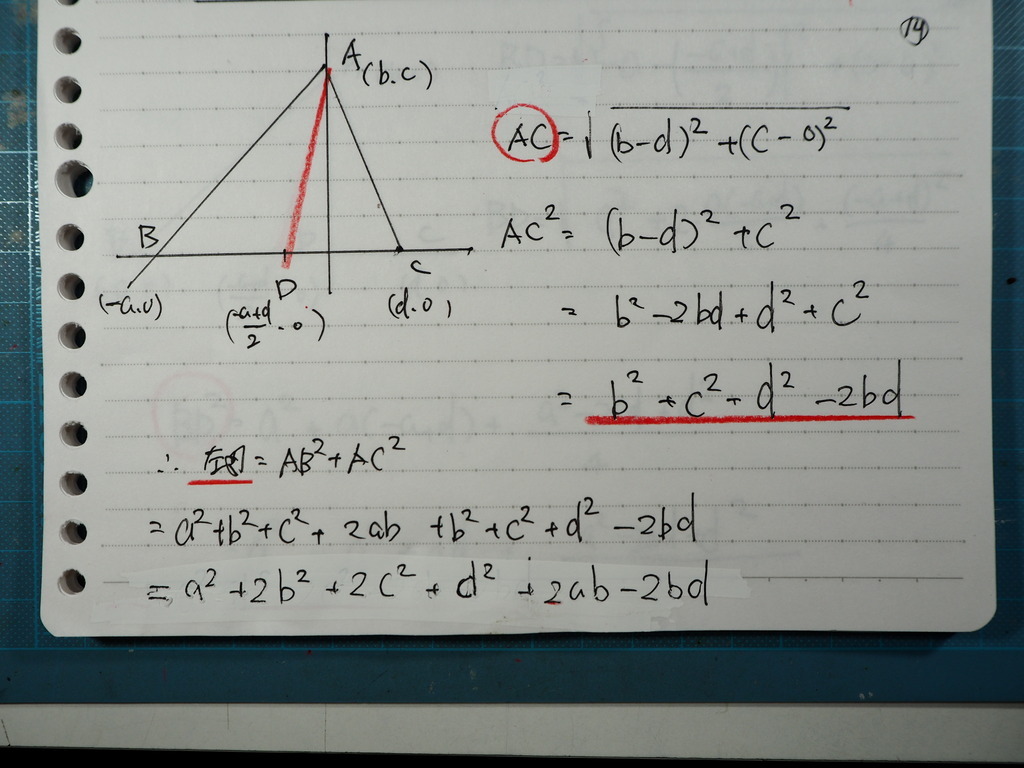 14
A
(b.c)
AC = √(b-d)² + (C-0)²
B
AC² = (b-d)² + C²
C
(-a.0)
D
(-a+d/2 . 0)
(d.0)
= b² - 2bd + d² + C²
= b² + C² + d² - 2bd
∴ 左辺 = AB² + AC²
= a² + b² + c² + 2ab + b² + c² + d² - 2bd
= a² + 2b² + 2c² + d² + 2ab - 2bd